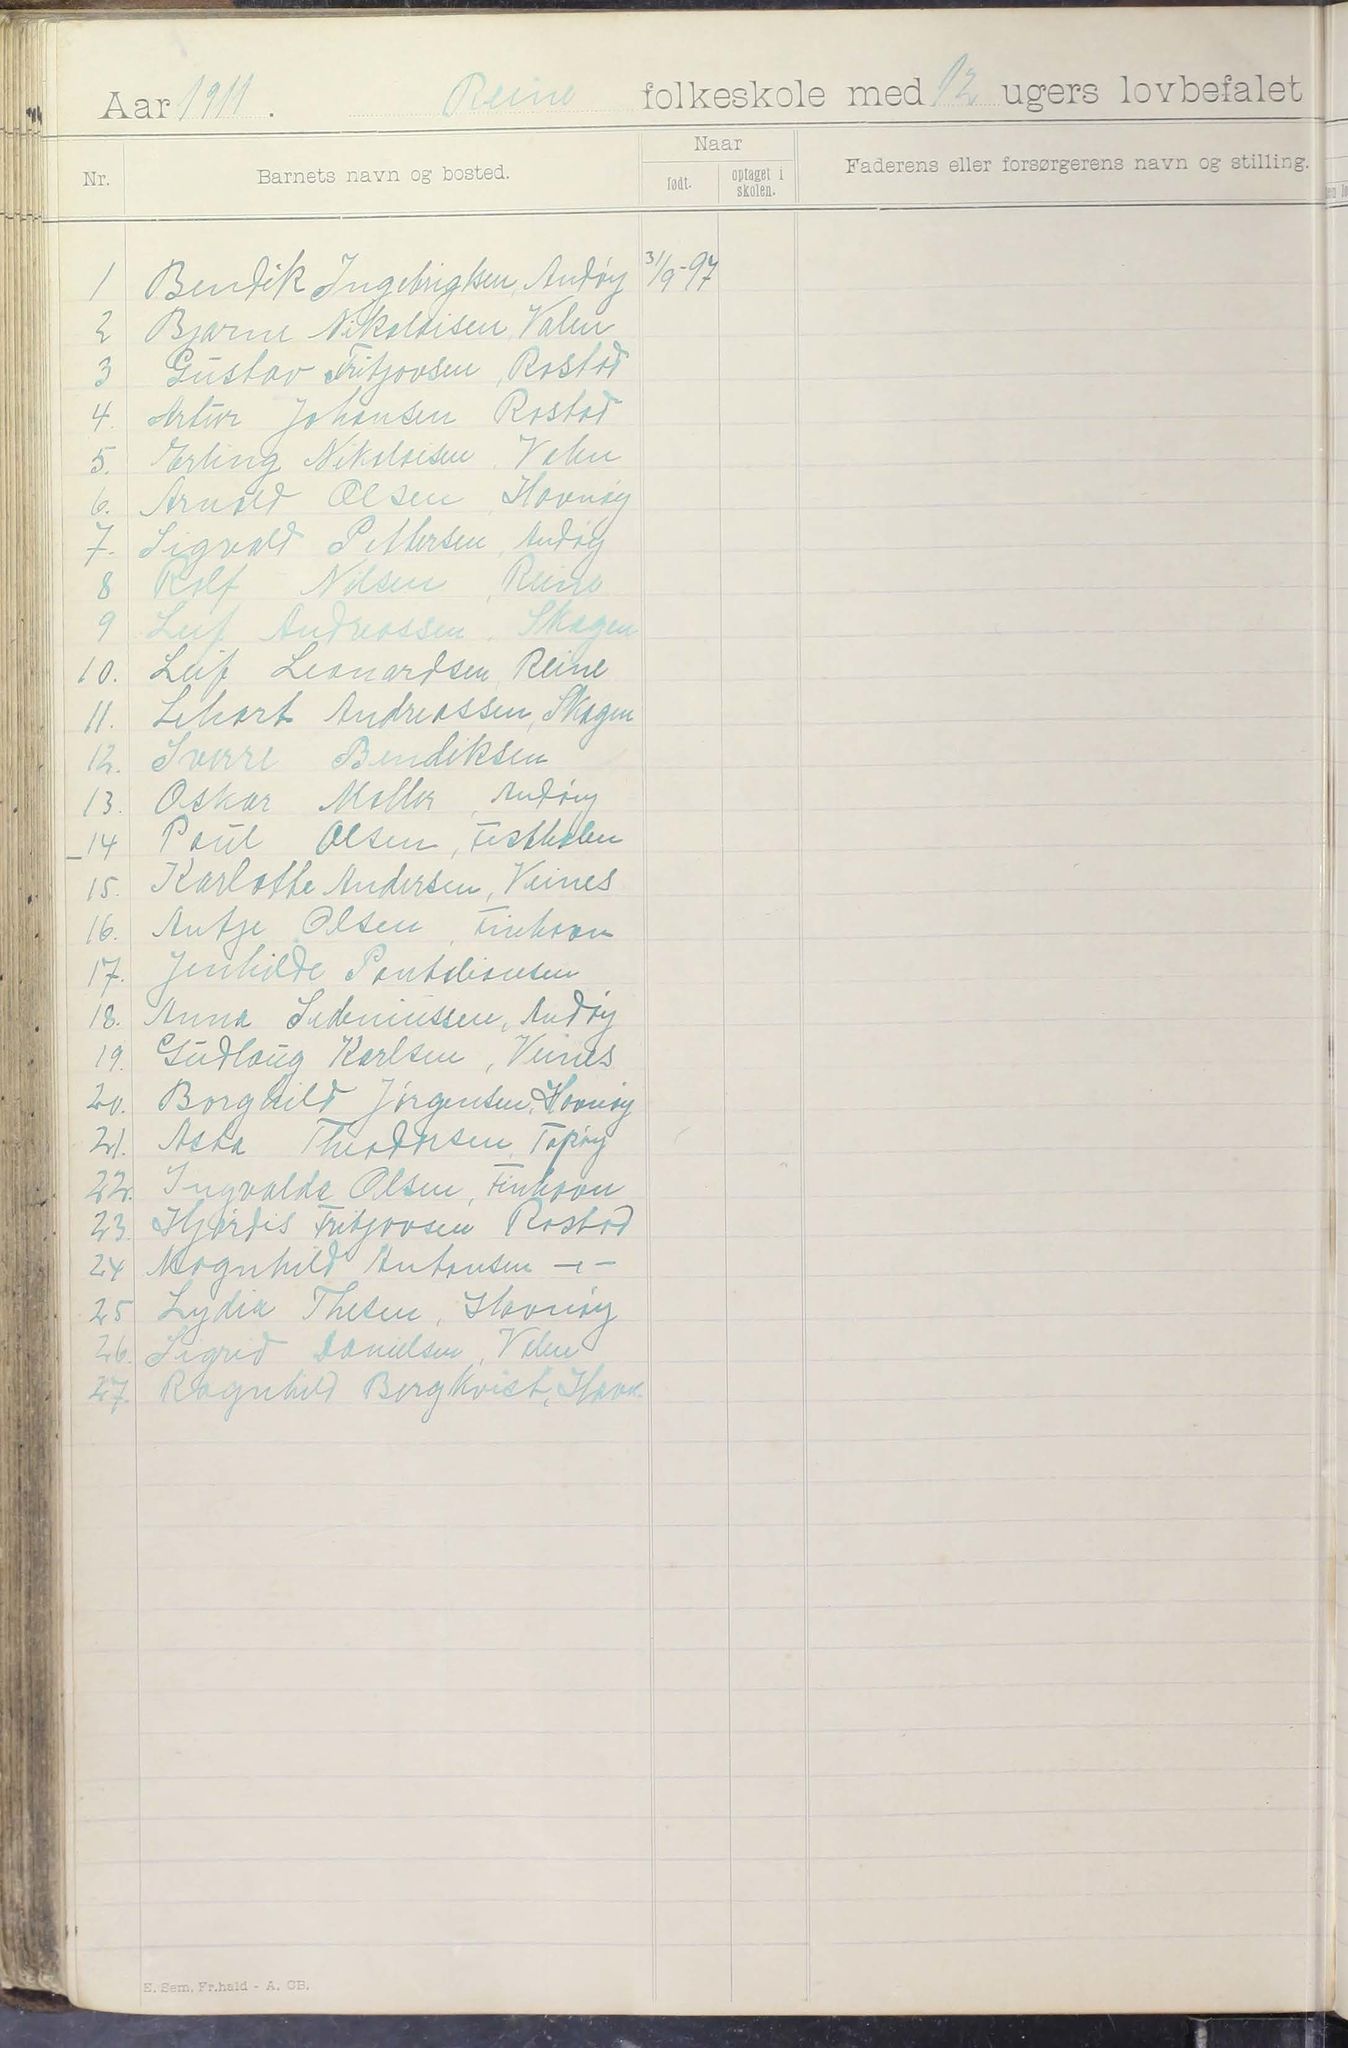 Aar 1911. Reine folkeskole med 12 ugers lovbefalet
Naar
Nr. Barnets navn og bosted. født. optaget i skolen. Faderens eller forsørgerens navn og stilling.
1 Bendik Ingebrigtsen, Andøy 31/9-97
2 Bjarne Nikolaisen, Valen
3 Gustav Fritjovsen, Rostad
4. Artur Johansen Rostad
5. Erling Nikolaisen, Valen
6. Arnold Olsen, Havnøy
7. Sigvald Pettersen, Andøy
8 Rolf Nilsen, Reine
9 Leif Andreassen, Skagen
10. Leif Leonardsen, Reine
11. Andreassen, Skagen
12. Sverre Bendiksen
13. Oskar Møller, Andøy
14 Paul Olsen,
15. Karlothe Andersen, Veines
16. Antje Olsen, Finhavn
17. Jenhilde
18. Anna Andøy
19. Gudlaug Karlsen, Veines
20. Borghild Jørgensen, Havnøy
21. Asta Theodorsen, Topøy
22. Ingvalda Olsen, Finhavn
23. Hjørdis Fritjovsen Rostad
24 Magnhild Antonsen -"-
25 Lydia Thesen, Havnøy
26. Sigrid Danielsen, Valen
27. Ragnhild Bergkvist, Havn.
E. Sem, Fr.hald - A. GB.